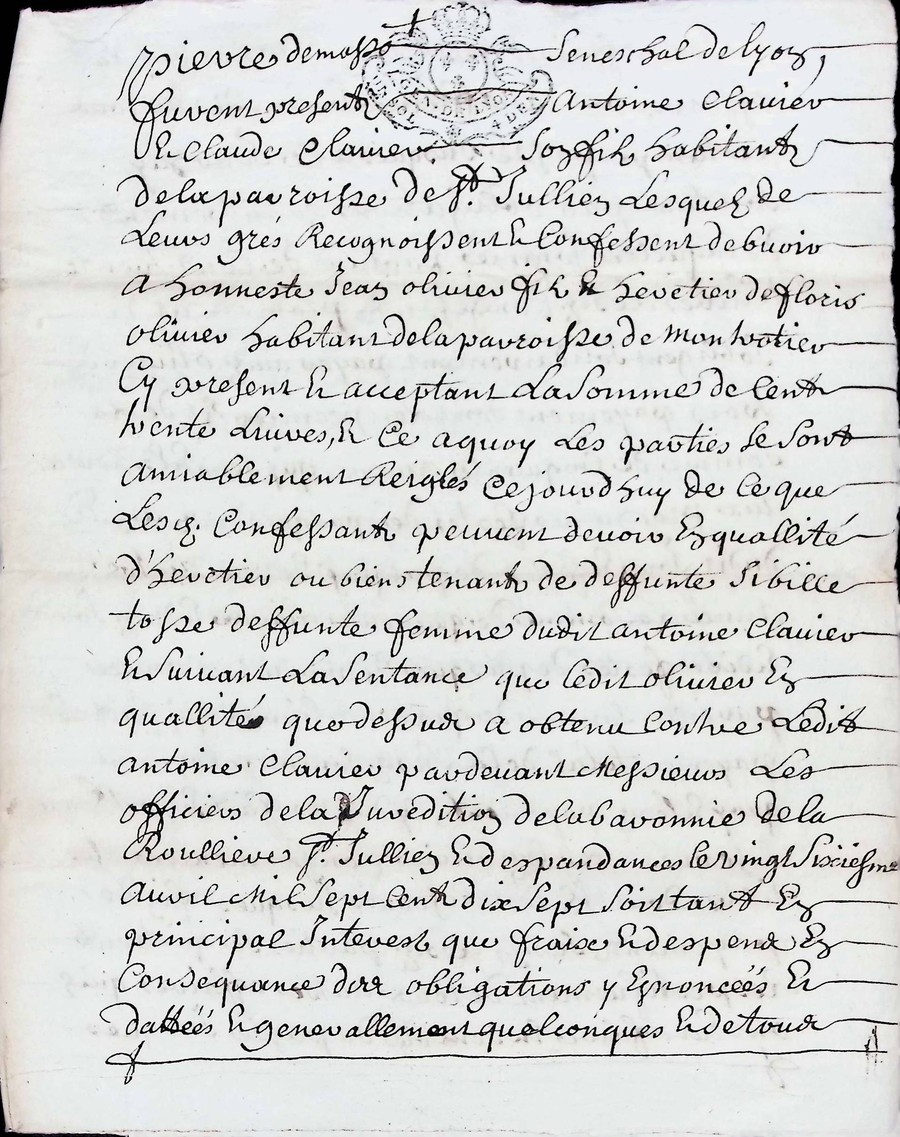 pierre demasso Seneschal de lyon,
furent present Antoine Clavier
Et Claude Clavier Son filz habitantz
de la parroisse de St. Jullien Lesquelz de
Leurs grés Recognoissent Et Confessent debvoir
A honneste Jean olivier filz Et heretier de floris
olivier habitant de la parroisse de Montrotier
Cy present Et acceptant La Somme de Cent
trente Livres, Et Ce a quoy Les parties Se Sont
Amiablement Reiglés Cejourdhuy de Ce que
Lesd. Confessantz peuvent devoir En quallité
d'heretier ou bienstenantz de deffunte Sibille
tosse deffunte femme dudit antoine Clavier
Et Suivant La Sentance que ledit olivier En
quallité que dessus a obtenu Contre Ledit
antoine Clavier pardevant Messieurs Les
officiers de la Juredition de la baronnie de la
Roulliere St. Jullien Et despandances le vingt Sixiesme
Avril Mil Sept Centz dix Sept Soit tant En
principal Interest que fraix Et despens En
Consequance des obligations y Enoncéés Et
dattéés Et generallement quelconques Et de tous